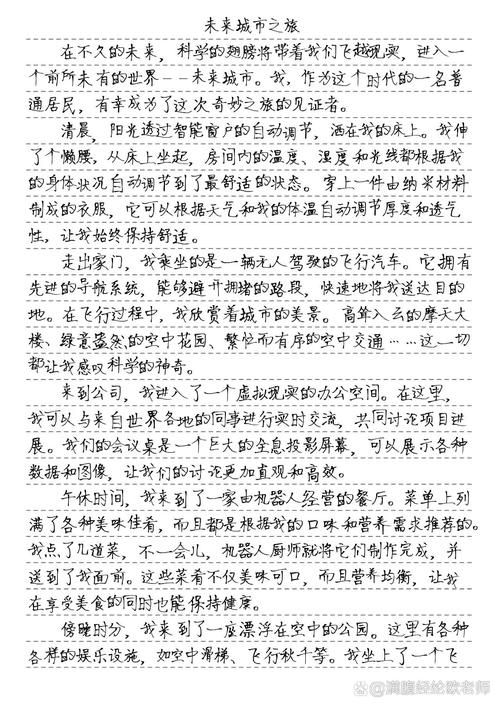 未来城市之旅
在不久的未来，科学的翅膀将带着我们飞越现实，进入一
个前所未有的世界——未来城市。我，作为这个时代的一名普
通居民，有幸成为了这次奇妙之旅的见证者。
清晨，阳光透过智能窗户的自动调节，洒在我的床上。我伸
了个懒腰，从床上坐起，房间内的温度、湿度和光线都根据我
的身体状况自动调节到了最舒适的状态。穿上一件由纳米材料
制成的衣服，它可以根据天气和我的体温自动调节厚度和透气
性，让我始终保持舒适。
走出家门，我乘坐的是一辆无人驾驶的飞行汽车。它拥有
先进的导航系统，能够避开拥堵的路段，快速地将我送达目的
地。在飞行过程中，我欣赏着城市的美景。高耸入云的摩天大
楼、绿意盎然的空中花园、繁忙而有序的空中交通……这一切
都让我感叹科学的神奇。
来到公司，我进入了一个虚拟现实的办公空间。在这里，
我可以与来自世界各地的同事进行实时交流，共同讨论项目进
展。我们的会议桌是一个巨大的全息投影屏幕，可以展示各种
数据和图像，让我们的讨论更加直观和高效。
午休时间，我来到了一家由机器人经营的餐厅。菜单上列
满了各种美味佳肴，而且都是根据我的口味和营养需求推荐的。
我点了几道菜，不一会儿，机器人厨师就将它们制作完成，并
送到了我面前。这些菜肴不仅美味可口，而且营养均衡，让我
在享受美食的同时也能保持健康。
傍晚时分，我来到了一座漂浮在空中的公园。这里有各种
各样的娱乐设施，如空中滑梯、飞行秋千等。我坐上了一个飞
满腹经纶欧老师